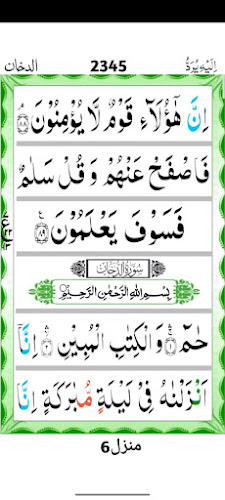 الدخان 2345 اِلَیْهِ یُرَدُّ
اِنَّ هٰۤؤُلَآءِ قَوْمٌ لَّا یُؤْمِنُوْنَ ۟﴿۸۸﴾
فَاصْفَحْ عَنْهُمْ وَ قُلْ سَلٰمٌ
فَسَوْفَ یَعْلَمُوْنَ ﴿۸۹﴾
سُوْرَةُ الدُّخَان
بِسْمِ اللهِ الرَّحْمٰنِ الرَّحِیْمِ
حٰمٓ ﴿۱﴾ وَ الْكِتٰبِ الْمُبِیْنِ ﴿۲﴾ اِنَّاۤ
اَنْزَلْنٰهُ فِیْ لَیْلَةٍ مُّبٰرَكَةٍ اِنَّا
منزل6